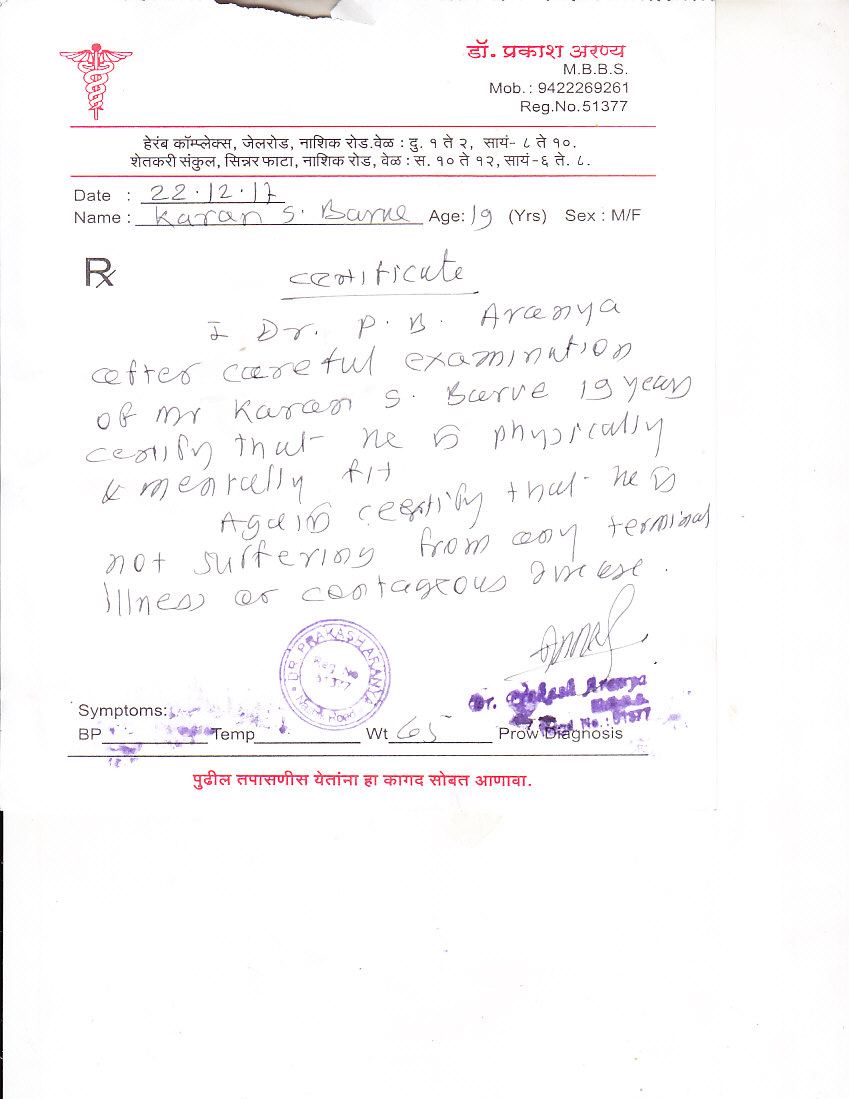 डॉ. प्रकाश अरण्य
M.B.B.S.
Mob.: 9422269261
Reg.No.51377
हेरंब कॉम्प्लेक्स, जेलरोड, नाशिक रोड.वेळ : दु. १ ते २, सायं- ८ ते १०.
शेतकरी संकुल, सिन्नर फाटा, नाशिक रोड, वेळ : स. १० ते १२, सायं-६ ते. ८.
Date : 22.12.17
Name : Karan S. Barve Age: 19 (Yrs) Sex : M/F
Rx
certificate
I Dr. P. B. Aranya
after careful examination
of Mr Karan S. Barve 19 years
certify that he is physically
& mentally fit
Again certify that he is
not suffering from any terminal
illness or contageous disease.
DR. PRAKASH ARANYA
Reg. No
51377
Nasik Road
Dr. Prakash Aranya
M.B.B.S.
Reg No.: 51377
Symptoms:
BP Temp Wt 65 Prow Diagnosis
पुढील तपासणीस येतांना हा कागद सोबत आणावा.